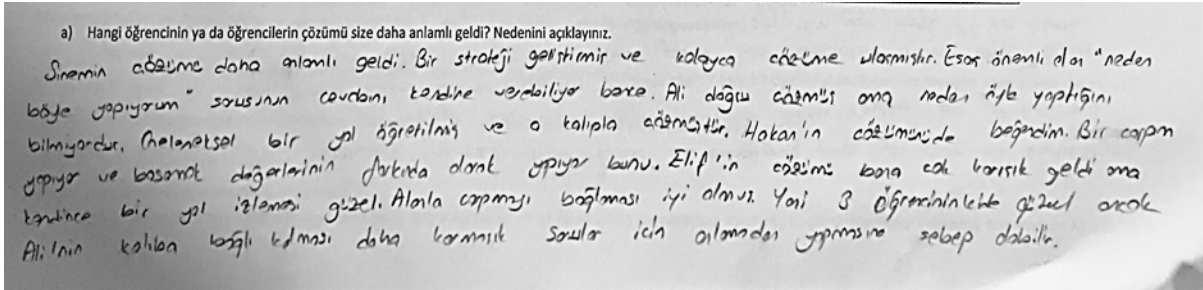 a) Hangi öğrencinin ya da öğrencilerin çözümü size daha anlamlı geldi? Nedenini açıklayınız.
Sinemin çözümü daha anlamlı geldi. Bir strateji geliştirmiş ve kolayca çözüme ulaşmıştır. Esas önemli olan "neden
böyle yapıyorum" sorusunun cevabını, kendine verebiliyor bence. Ali doğru çözmüş ama neden öyle yaptığını
bilmiyordur. Geleneksel bir yol öğretilmiş ve o kalıpla çözmüştür. Hakan'ın çözümünü de beğendim. Bir çarpım
yapıyor ve basamak değerlerinin farkında olarak yapıyor bunu. Elif'in çözümü bana çok karışık geldi ama
kendince bir yol izlemesi güzel. Alanla çarpmayı bağlaması iyi olmuş. Yani 3 öğrencininkide güzel ancak
Ali'nin kalıba bağlı kalması daha karmaşık sorular için anlamadan yapmasına sebep olabilir.